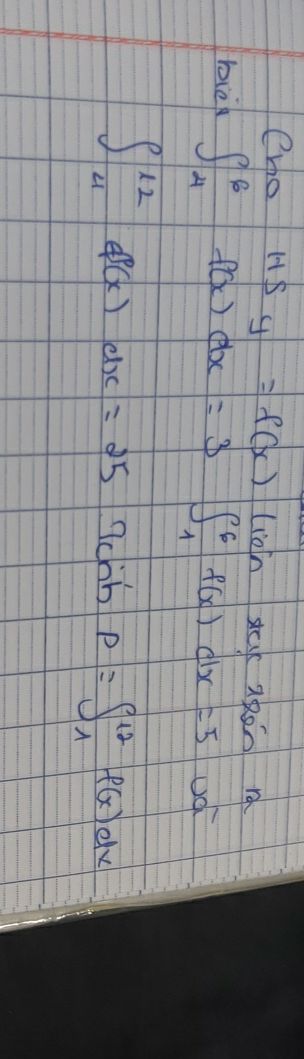 Cho HS y = f(x) liên tục trên R
biết ∫₄⁶ f(x) dx = 3 ∫₁⁶ f(x) dx = 5 và
∫₄¹² f(x) dx = 25 Tính P = ∫₁¹² f(x) dx